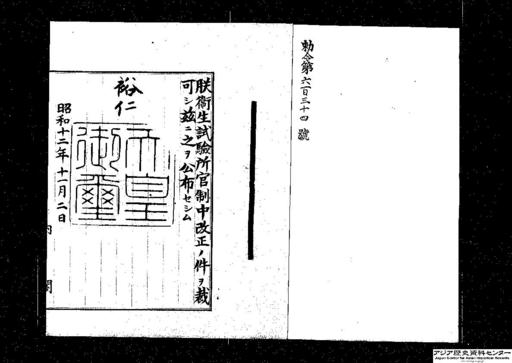 勅令第六百三十四號
朕衞生試驗所官制中改正ノ件ヲ裁
可シ茲ニ之ヲ公布セシム
裕仁
天皇御璽
昭和十二年十一月二日
内閣
アジア歴史資料センター
Japan Center for Asian Historical Records